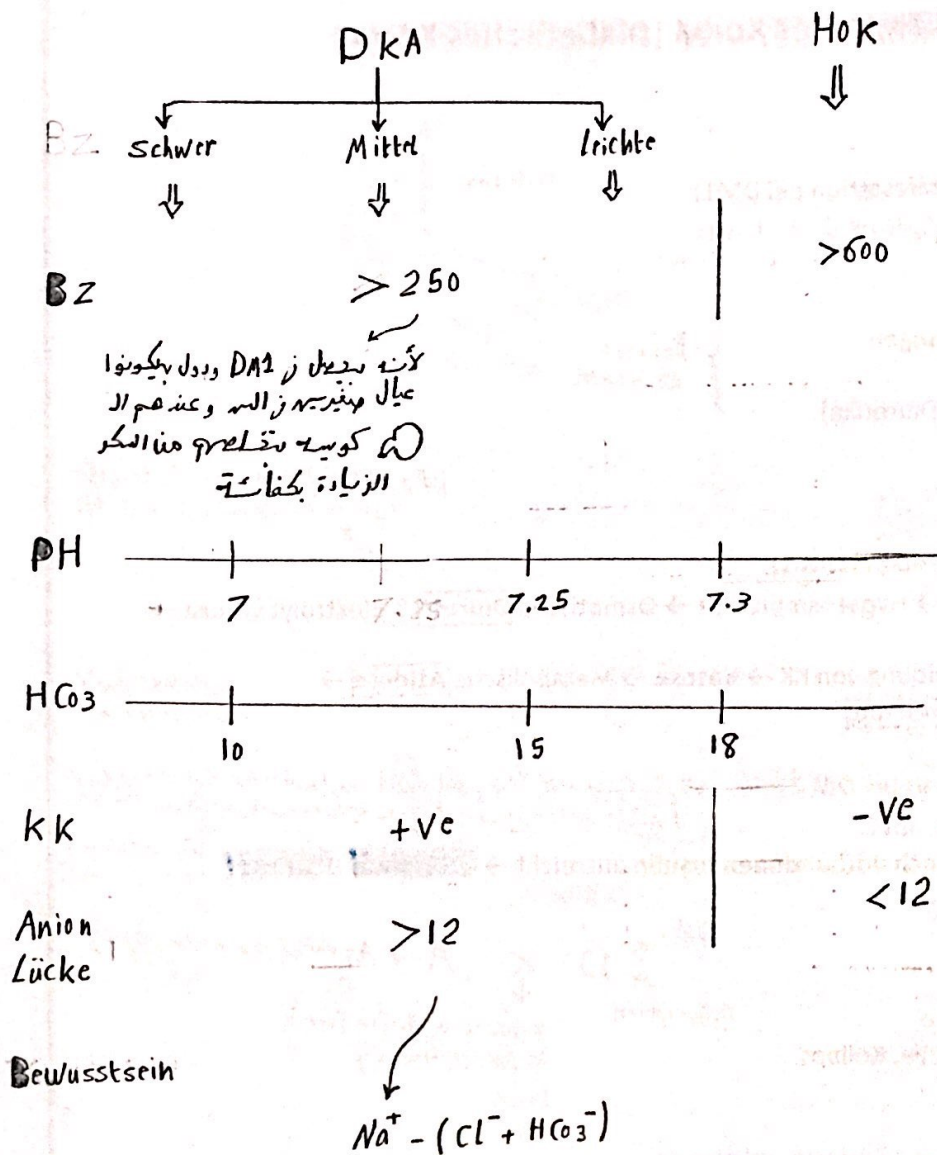 DKA HOK
⇓
schwer Mittel leichte
⇓ ⇓ ⇓
BZ > 250 >600
لأنه بيحصل ف DM1 ودول بيكونوا
عيال صغيرين ف السن وعندهم ال
كويسه بتخلصهم من السكر
الزيادة بكفائة
PH
7 7.25 7.3
HCo3
10 15 18
KK +ve -ve
Anion >12 <12
Lücke
Bewusstsein
Na⁺ - (Cl⁻ + HCo3⁻)